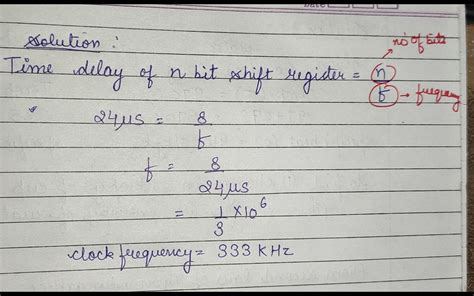 Date
Solution :
no of bits
Time delay of n bit shift register = n
f → frequency
24μs = 8
f
f = 8
24μs
= 1 × 10⁶
3
clock frequency = 333 KHz